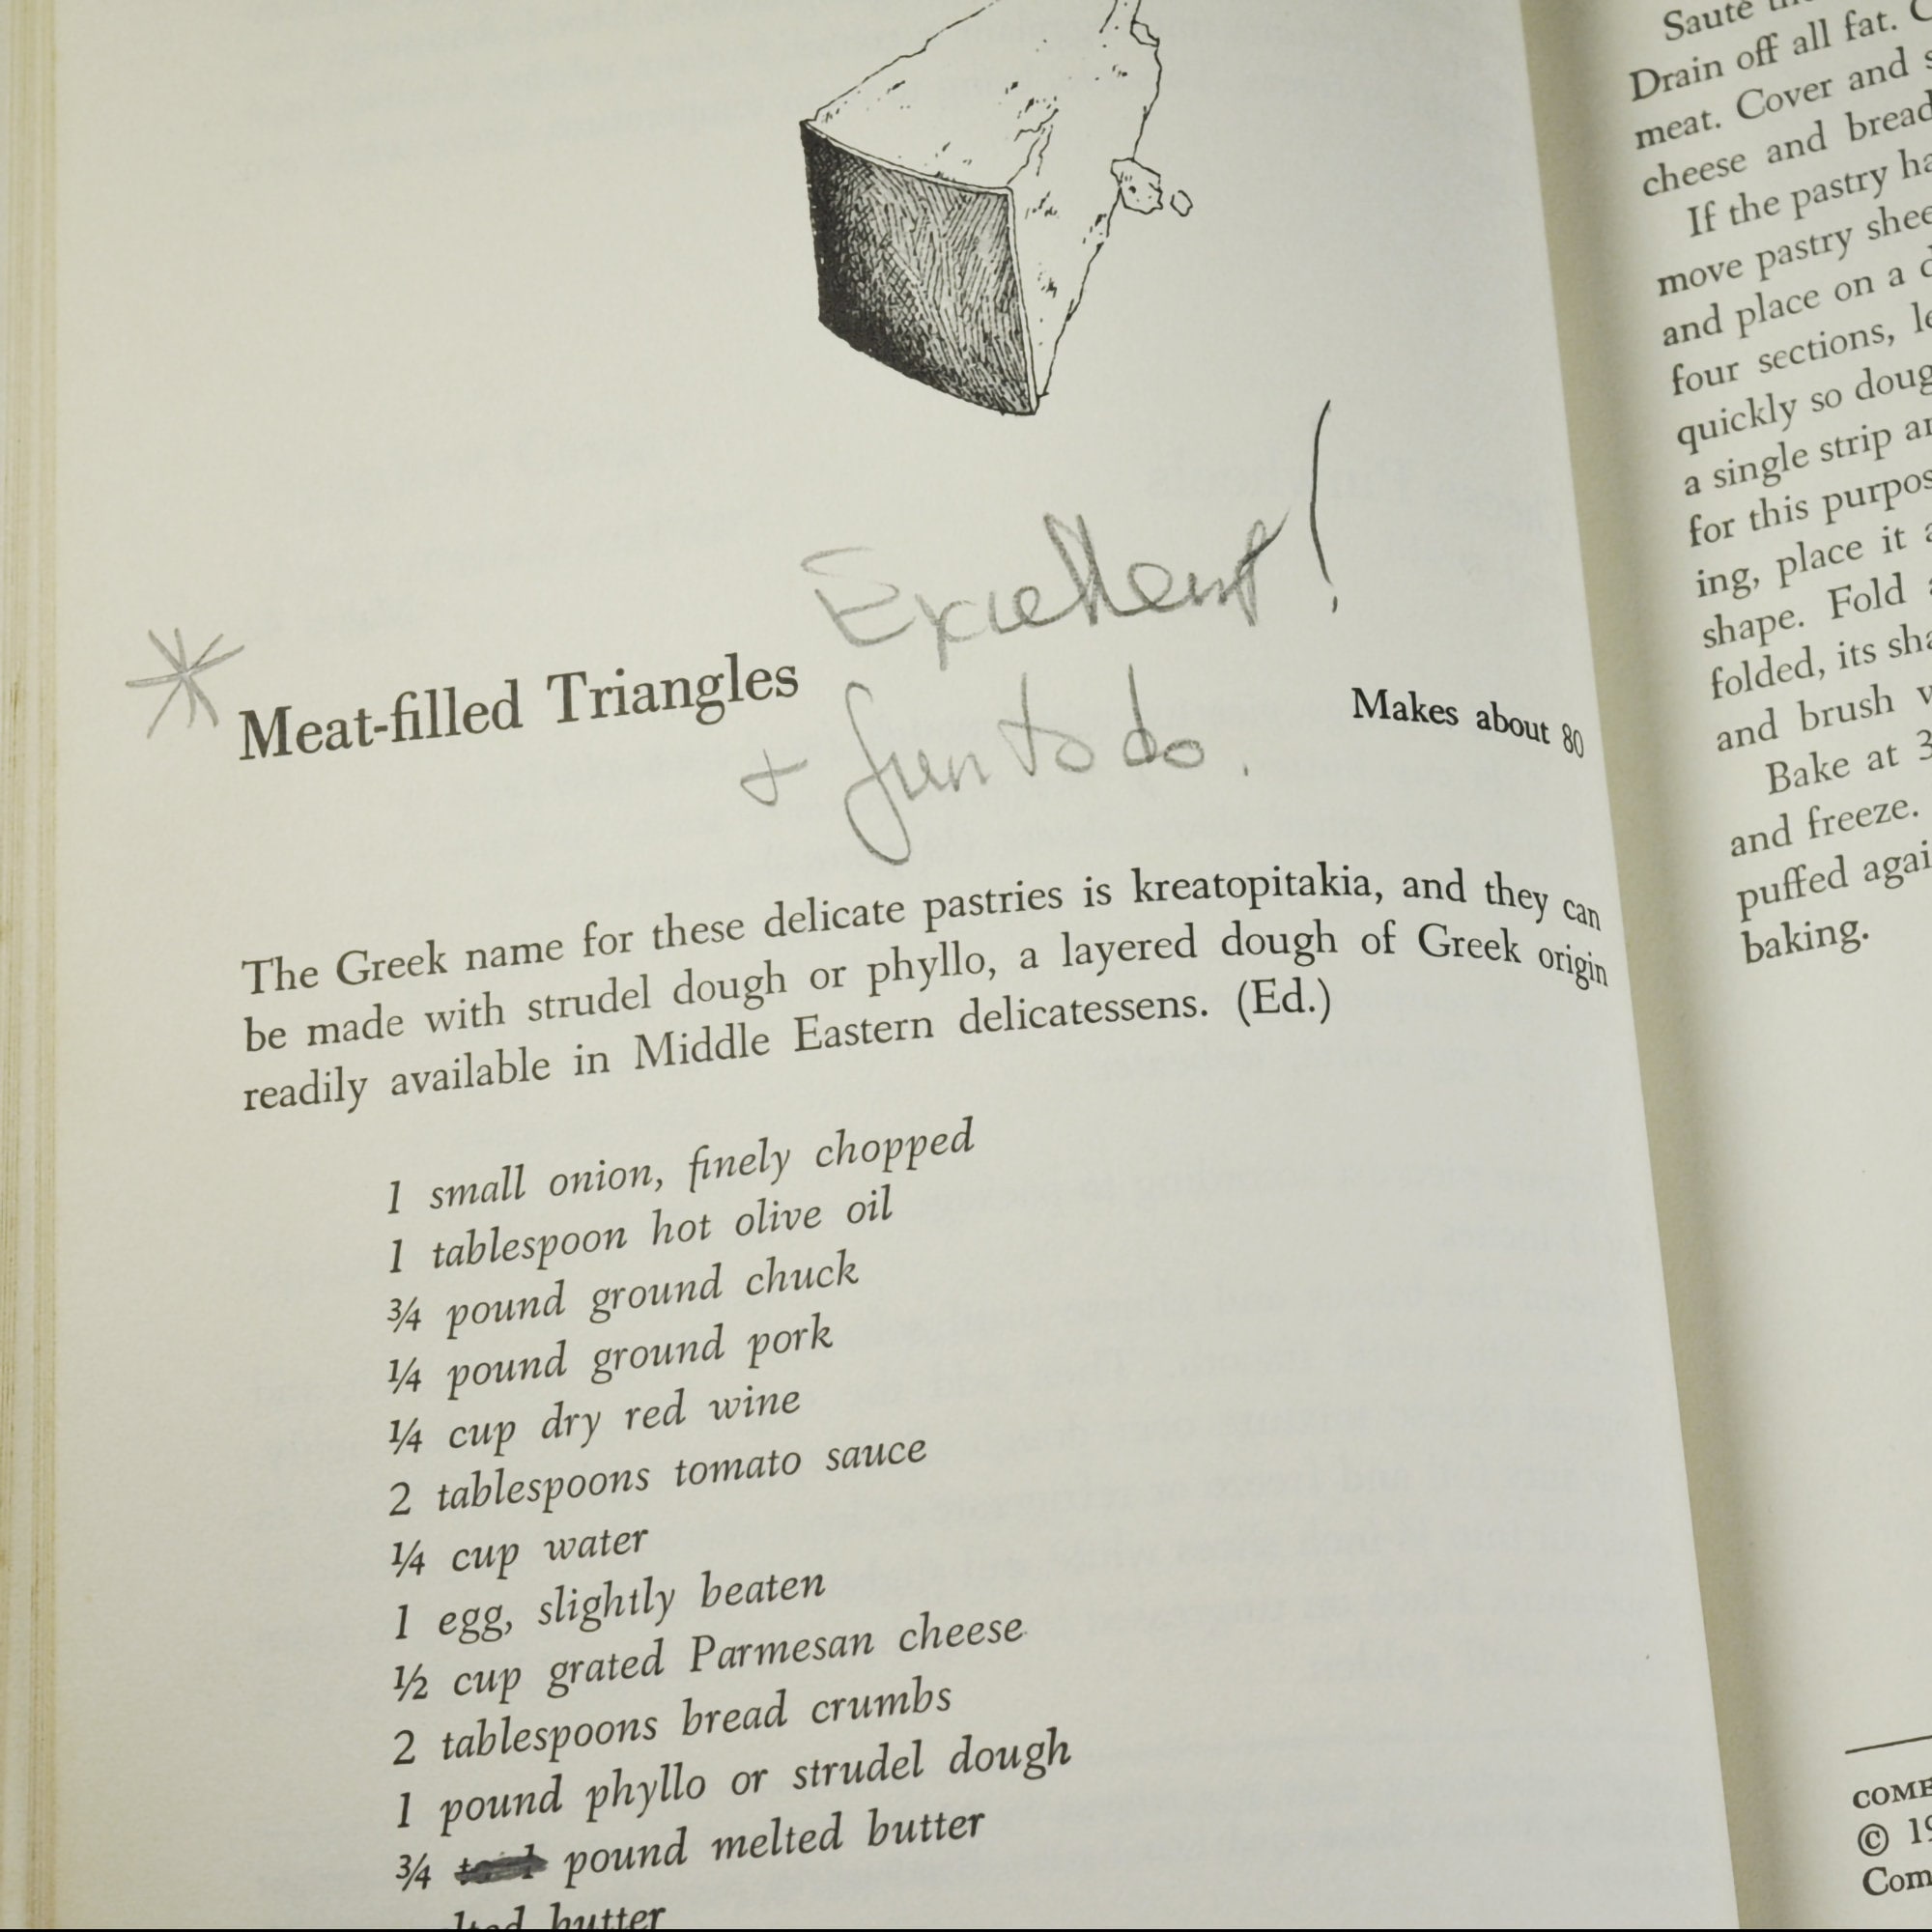 Excellent!
Meat-filled Triangles
+ fun to do.
Makes about 80
The Greek name for these delicate pastries is kreatopitakia, and they can
be made with strudel dough or phyllo, a layered dough of Greek origin
readily available in Middle Eastern delicatessens. (Ed.)
1 small onion, finely chopped
1 tablespoon hot olive oil
¾ pound ground chuck
¼ pound ground pork
¼ cup dry red wine
2 tablespoons tomato sauce
¼ cup water
1 egg, slightly beaten
½ cup grated Parmesan cheese
2 tablespoons bread crumbs
1 pound phyllo or strudel dough
¾ pound melted butter
butter
Sauté
Drain off all fat.
meat. Cover and
cheese and bread
If the pastry
move pastry
and place on a
four sections,
quickly so
a single strip
for this
ing, place it
shape. Fold
folded, its
and brush
Bake at
and freeze.
puffed
baking.
©